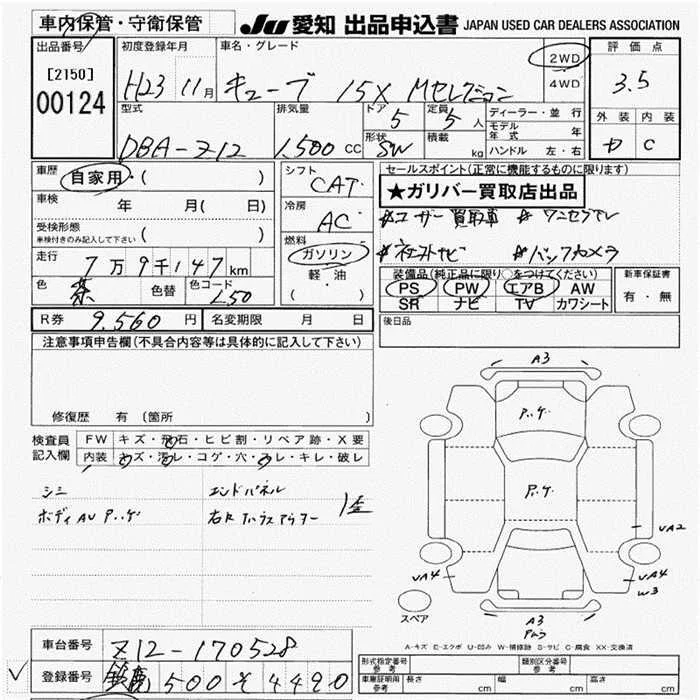 車内保管・守衛保管
JU 愛知 出品申込書 JAPAN USED CAR DEALERS ASSOCIATION
出品番号
[2150]
00124
初度登録年月
H23 11月
車名・グレード
キューブ 15X Mセレクション
2WD
4WD
評価点
3.5
外装 内装
C
型式
DBA-Z12
排気量
1,500 CC
ドア
5
定員
5人
形状
SW
積載
kg
ディーラー・並行
モデル年式 年
ハンドル 左・右
車歴
自家用・( )
車検 年 月( 日)
受検形態
車検付きのみ記入して下さい ( )
走行
7万9千147km
色
茶
色替
色コード
L50
シフト
CAT
冷房
AC
燃料
ガソリン
軽・油
( )
セールスポイント(正常に機能するものに限ります)
★ガリバー買取店出品
☆ユーザー買取車 ☆ワンセグTV
☆バックカメラ
装備品(純正品に限り○をつけてください)
PS PW エアB AW
SR ナビ TV カワシート
新車保証書
有・無
R券 9,560 円
名変期限 月 日
後日品
注意事項申告欄(不具合内容等は具体的に記入して下さい)
修復歴 有(箇所 )
検査員
記入欄
FW キズ・飛石・ヒビ割・リペア跡・X要
内装 キズ・汚レ・コゲ・穴・スレ・キレ・破レ
シミ
エンドパネル
ボディAU
A3
VA2
VA4
VA4
W3
スペア
A3
A-キズ E-エクボ U-凹み W-補修跡 S-サビ C-腐食 XX-交換済
車台番号
Z12-170528
登録番号
鈴鹿 500 そ 4490
形式指定番号
参考
類別区分番号
参考
車庫証明用
参考
長さ cm
幅 cm
高さ cm